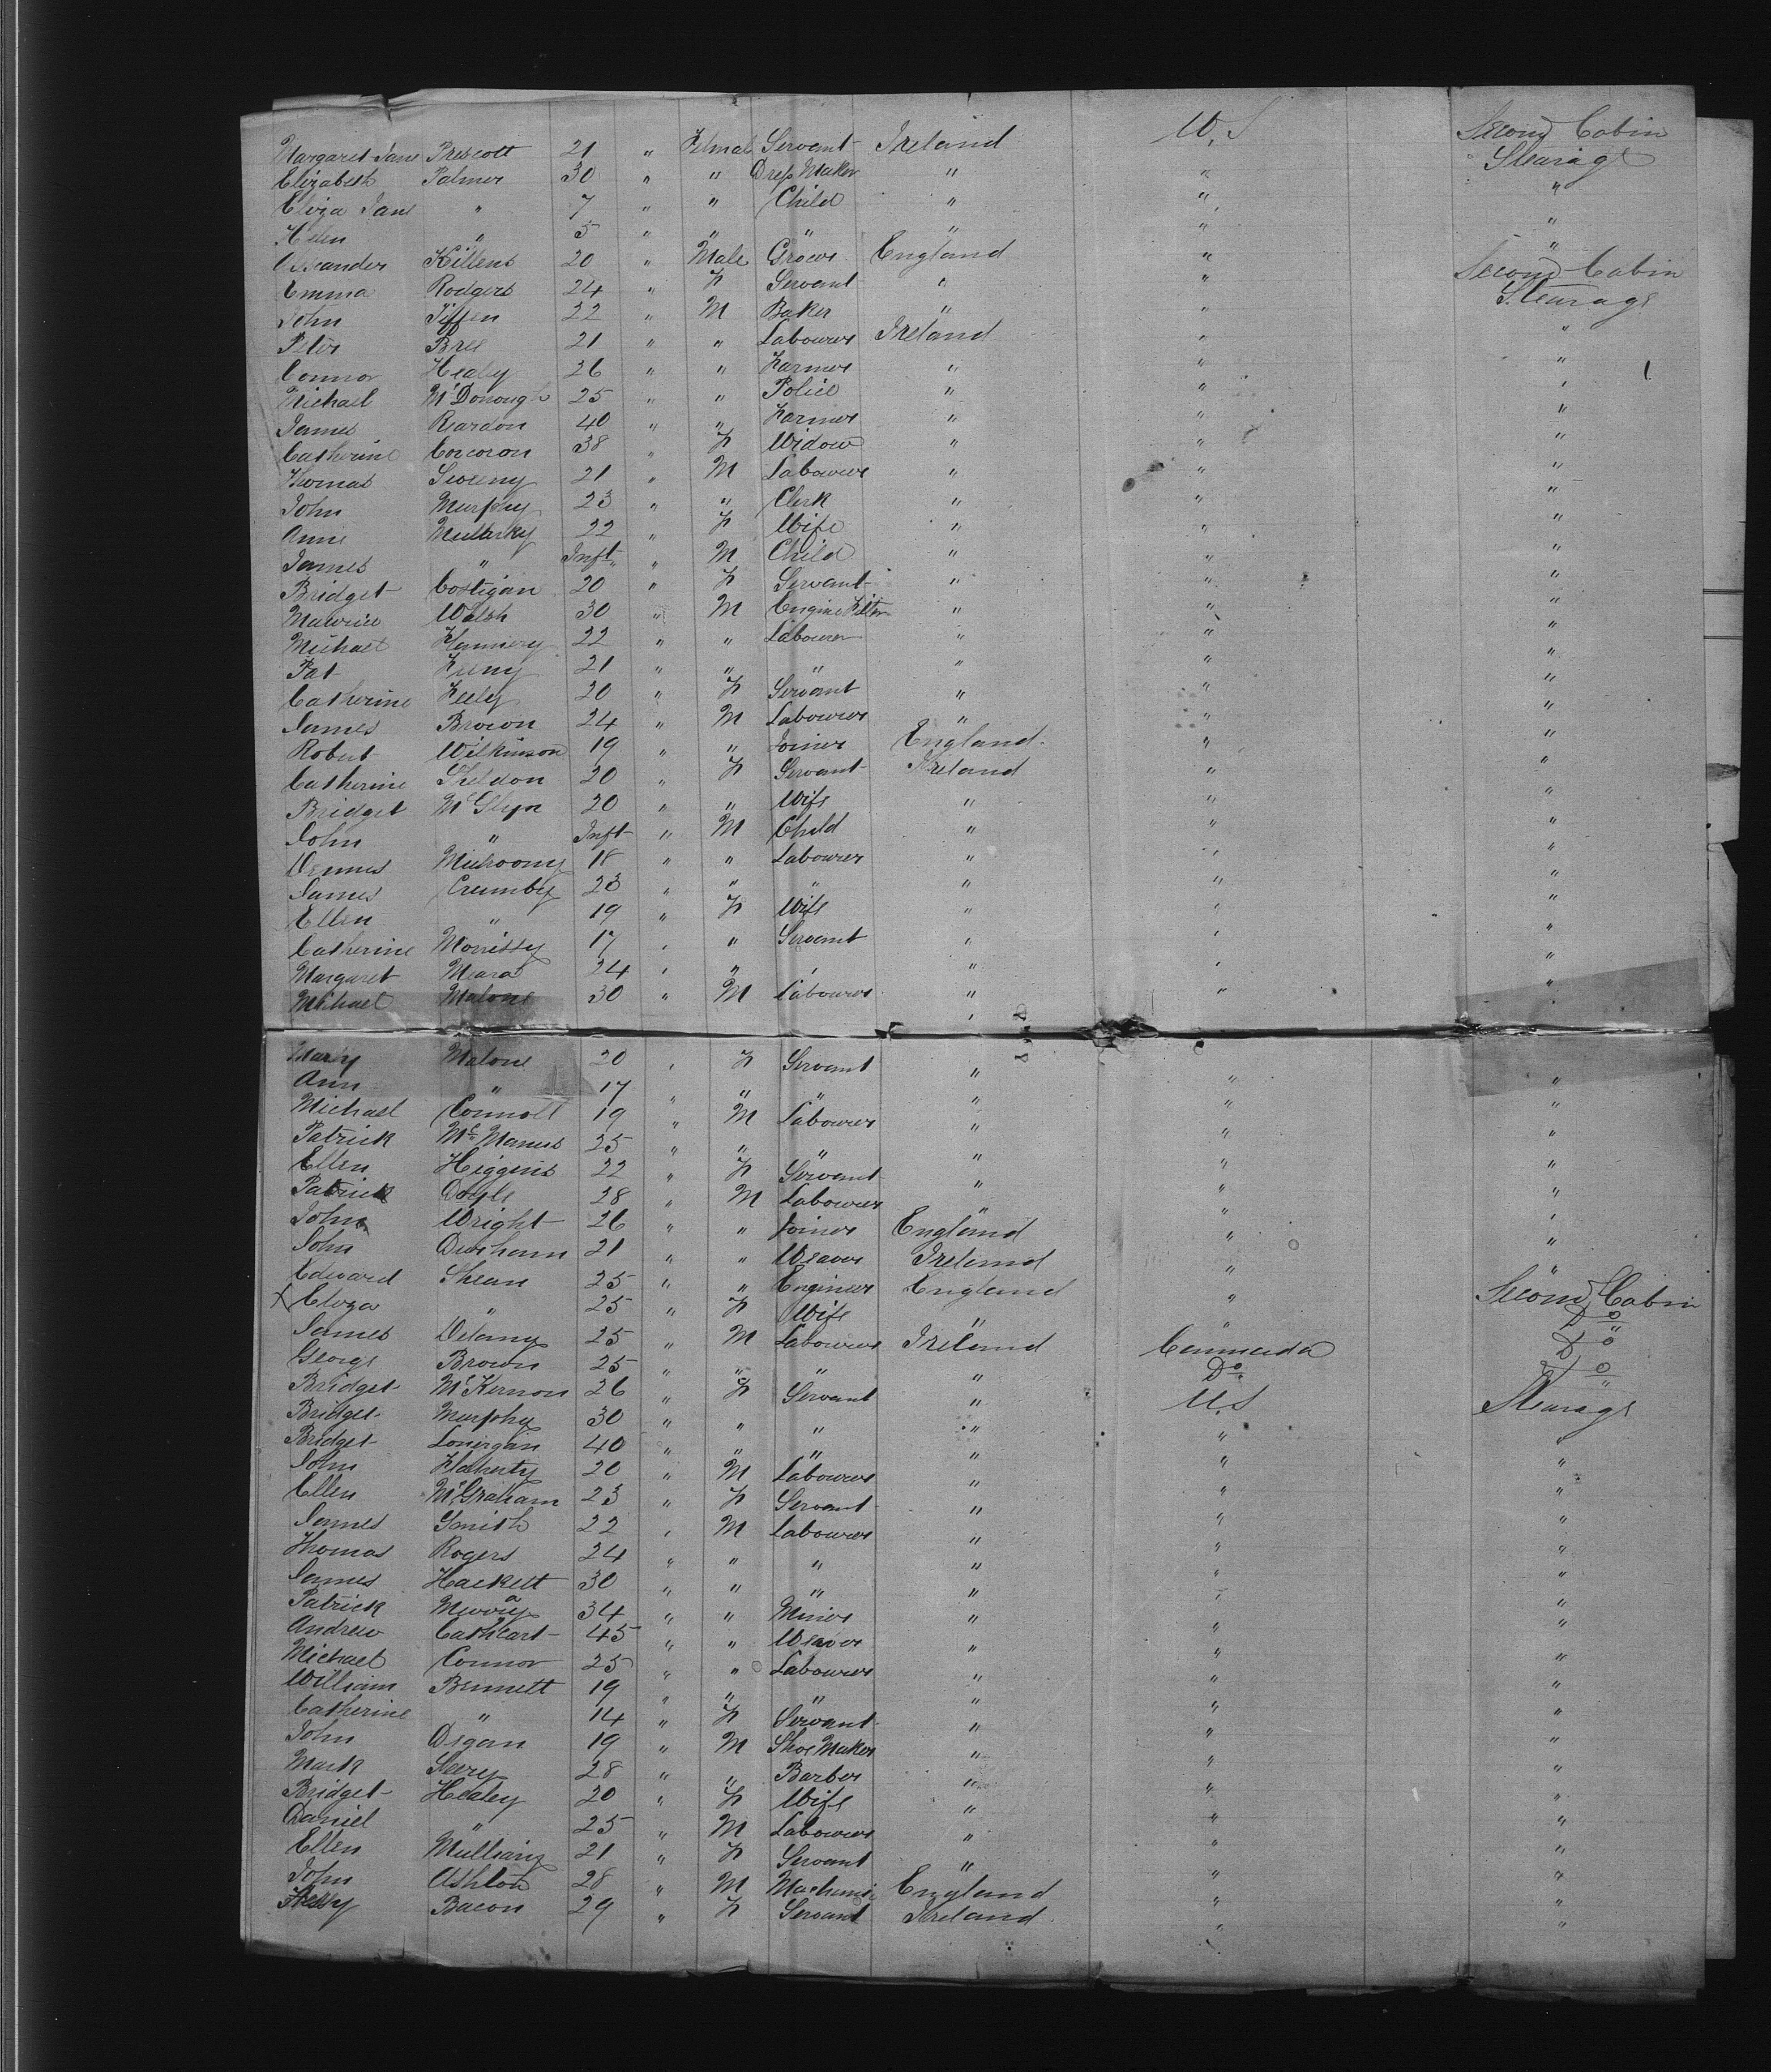 Margaret Jane Prescott 21 " Femal Servant Ireland U.S Second Cabin
Elizabeth Palmer 30 " " Dress Maker " " Stearage
Eliza Jane " 7 " " Child " " "
Helen " 5 " " " " " "
Killens 20 " Male England " "
Emma Rodgers 24 " F Servant " " Second Cabin
John Tiffen 22 " M Baker " " Stearage
Peter Bree 21 " " Labourer Ireland " "
Connor Healy 26 " " Farmer " " "
Michael McDonough 25 " " Police " " "
James Reardon 40 " " Farmer " " "
Catherine Corcoron 38 " F Widow " " "
Thomas Sweeny 21 " M Labourer " " "
John Murphy 23 " " Clerk " " "
Anne Mullarky 22 " F Wife " " "
James " Inft " M Child " " "
Bridget Costigan 20 " F Servant " " "
Maurice Walsh 30 " M Engine Fitter " " "
Michael Flannery 22 " " Labourer " " "
Pat Feeny 21 " " " " " "
Catherine Feely 20 " F Servant " " "
James Brown 24 " M Labourer " " "
Robert Wilkinson 19 " " Joiner England " "
Catherine Sheldon 20 " F Servant Ireland " "
Bridget McGlyn 20 " " Wife " " "
John " Inft " M Child " " "
Dennis Mulroony 18 " " Labourer " " "
James Crumby 23 " " " " " "
Ellen " 19 " F Wife " " "
Catherine Morrissy 17 " " Servant " " "
Margaret Meara 24 " " " " " "
Michael Malone 30 " M Labourer " " "
Mary Malone 20 " F Servant " " "
Ann " 17 " " " " " "
Michael Connoll 19 " M Labourer " " "
Patrick McManus 25 " " " " " "
Ellen Higgins 22 " F Servant " " "
Patrick Doyle 28 " M Labourer " " "
John Wright 26 " " Joiner England " "
John Durham 21 " " Weaver Ireland " "
Edward Shean 25 " " Engineer England " Second Cabin
X Eliza " 25 " F Wife " " Do
James Delany 25 " M Labourer Ireland Cannada Do
George Brown 25 " " " " Do Do
Bridget McKernon 26 " F Servant " U.S Stearage
Bridget Murphy 30 " " " " " "
Bridget Lonergan 40 " " " " " "
John Flaherty 20 " M Labourer " " "
Ellen McGraham 23 " F Servant " " "
James Smith 22 " M Labourer " " "
Thomas Rogers 24 " " " " " "
James Hackett 30 " " " " " "
Patrick 34 " " Miner " " "
Andrew Cathcart 45 " " Weaver " " "
Michael Connor 25 " " Labourer " " "
William Bennett 19 " " " " " "
Catherine " 14 " F Servant " " "
John Degan 19 " M Shoe Maker " " "
Mark 28 " " Barber " " "
Bridget Healey 20 " F Wife " " "
Daniel " 25 " M Labourer " " "
Ellen 21 " F Servant " " "
John Ashton 28 " M England " "
Bacon 29 " F Servant Ireland " "